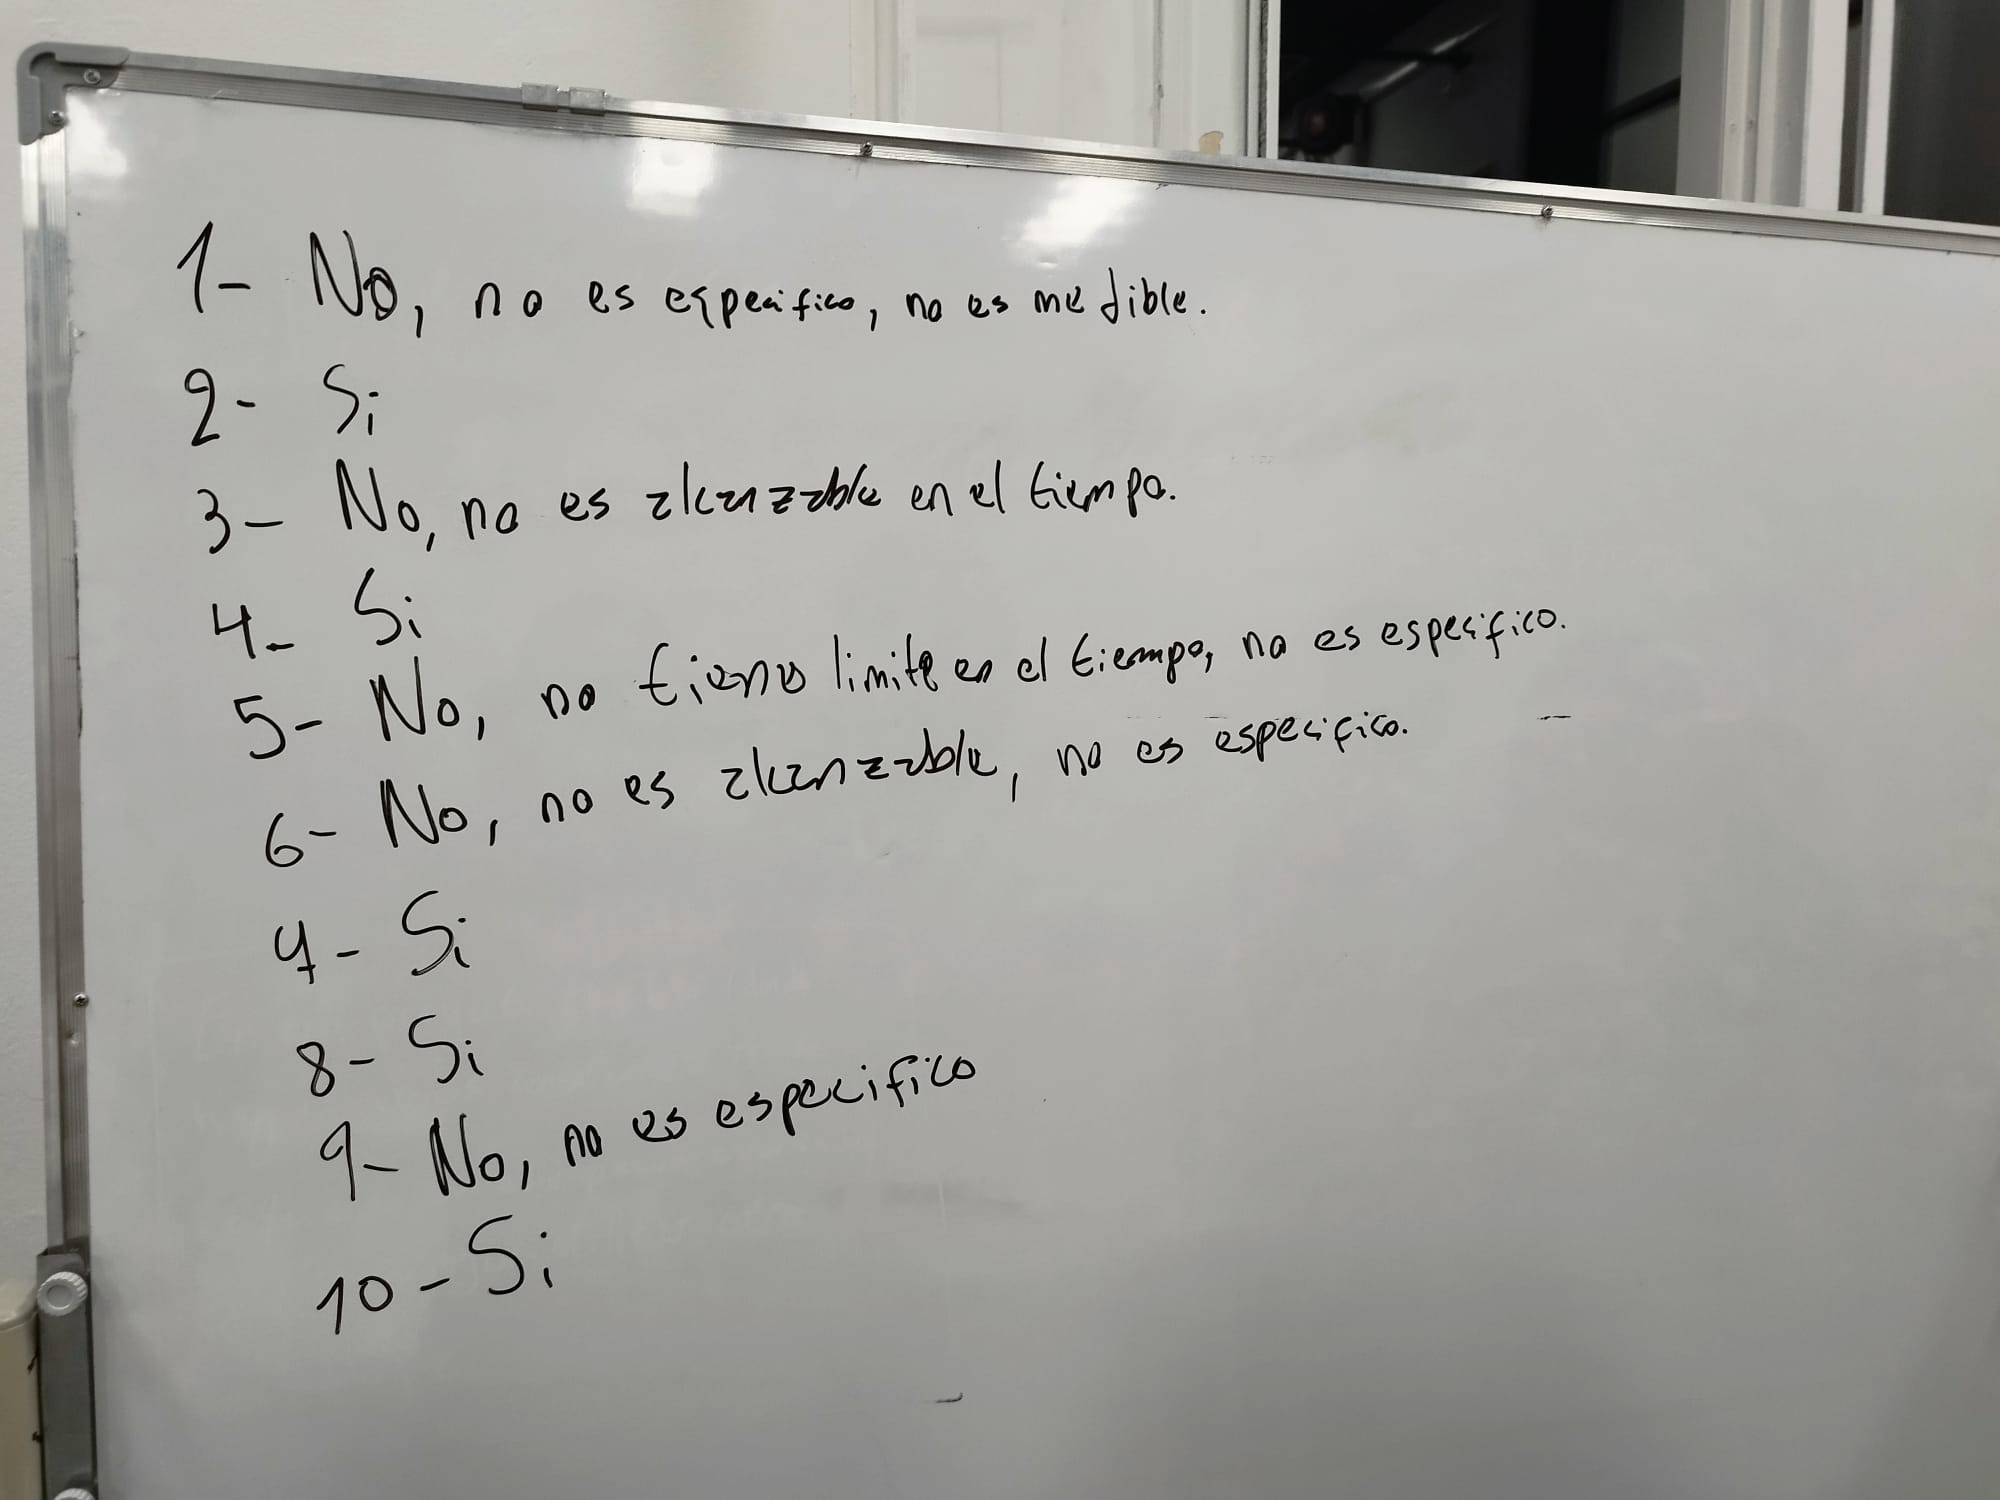 1- No, no es especifico, no es medible.
2- Si
3- No, no es alcanzable en el tiempo.
4- Si
5- No, no tiene limite en el tiempo, no es especifico.
6- No, no es alcanzable, no es especifico.
7- Si
8- Si
9- No, no es especifico
10- Si